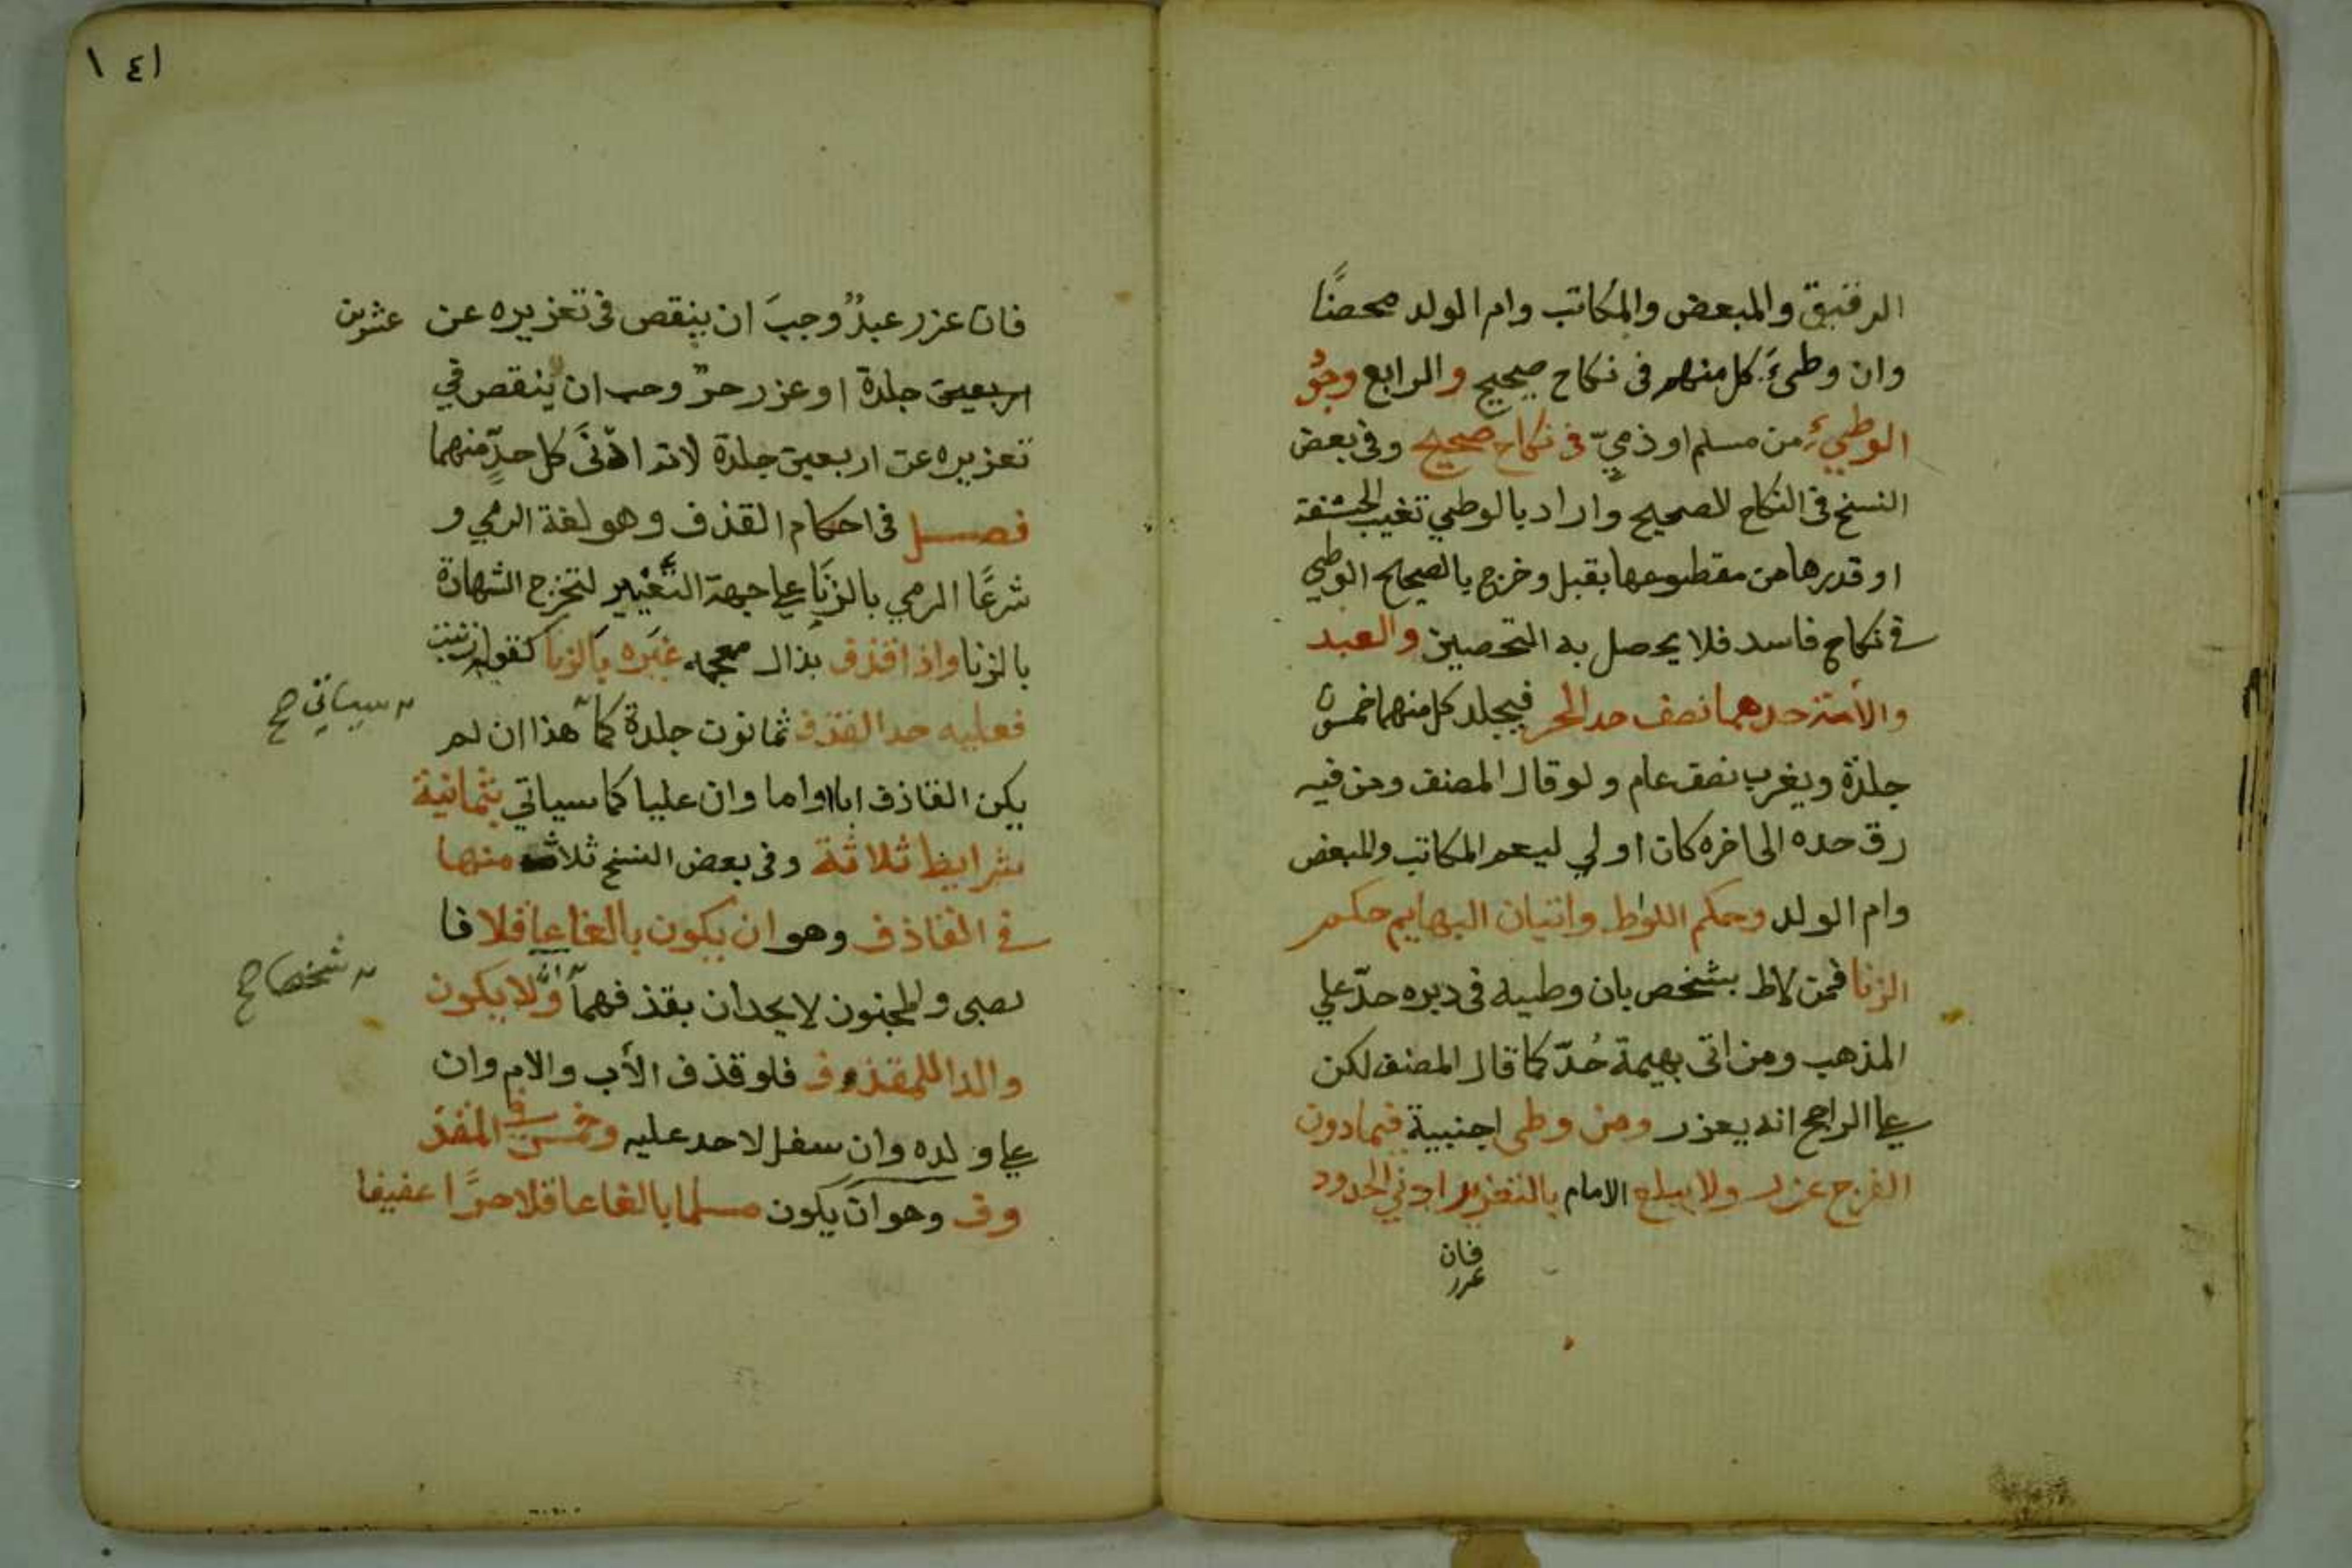 الرقيق والمبعض والمكاتب وام الولد محصنًا
وان وطئ كل منهم فى نكاح صحيح والرابع وجود
الوطيء من مسلم او ذميّ فى نكاح صحيح وفى بعض
النسخ فى النكاح الصحيح واراد بالوطي تغييب الحشفة
او قدرها من مقطوعها بقبل وخرج بالصحيح الوطي
فى نكاح فاسد فلا يحصل به التحصين والعبد
والأمة حدهما نصف حد الحر فيجلد كل منهما خمسون
جلدة ويغرب نصف عام ولو قال المصنف ومن فيه
رق حده الى اخره كان اولي ليعم المكاتب والمبعض
وام الولد وحكم اللواط واتيان البهايم حكم
الزنا فمن لاط بشخص بان وطيه فى دبره حدّ علي
المذهب ومن اتى بهيمة حُدّ كما قال المصنف لكن
على الراجح انه يعزر ومن وطى اجنبية فيمادون
الفرج عزر ولا يبلغ الامام بالتعزير ادني الحدود
فان
عزر
١٤١
فان عزر عبدٌ وجبَ ان ينقص فى تعزيره عن عشرين
اربعين جلدة او عزر حرٌ وجب ان ينقص في
تعزيره عن اربعين جلدة لانه ادنَى كل حدٍّ منهما
فصل فى احكام القذف وهو لغة الرمي و
شرعًا الرمي بالزنَا على جهة التعْيير لتخرج الشهادة
بالزنا واذا قذف بذال معجمه غيَره بالزنا كقوله زنيت
فعليه حد القذف ثمانون جلدة كما هذا ان لم
سياتي صح
يكن القاذف ابا او اما وان عليا كما سياتي بثمانية
شرايط ثلاثة وفى بعض النسخ ثلاث منها
فى القاذف وهو ان يكون بالغا عاقلا فا
لصبى والمجنون لا يحدان بقذفهما وَّلا يكون
شخصا صح
والدا للمقذوف فلو قذف الأب والام وان
على ولده وان سفل لا حد عليه وخمس فى المقذ
وف وهو ان يكون مسلما بالغا عاقلا حرًّا عفيفا